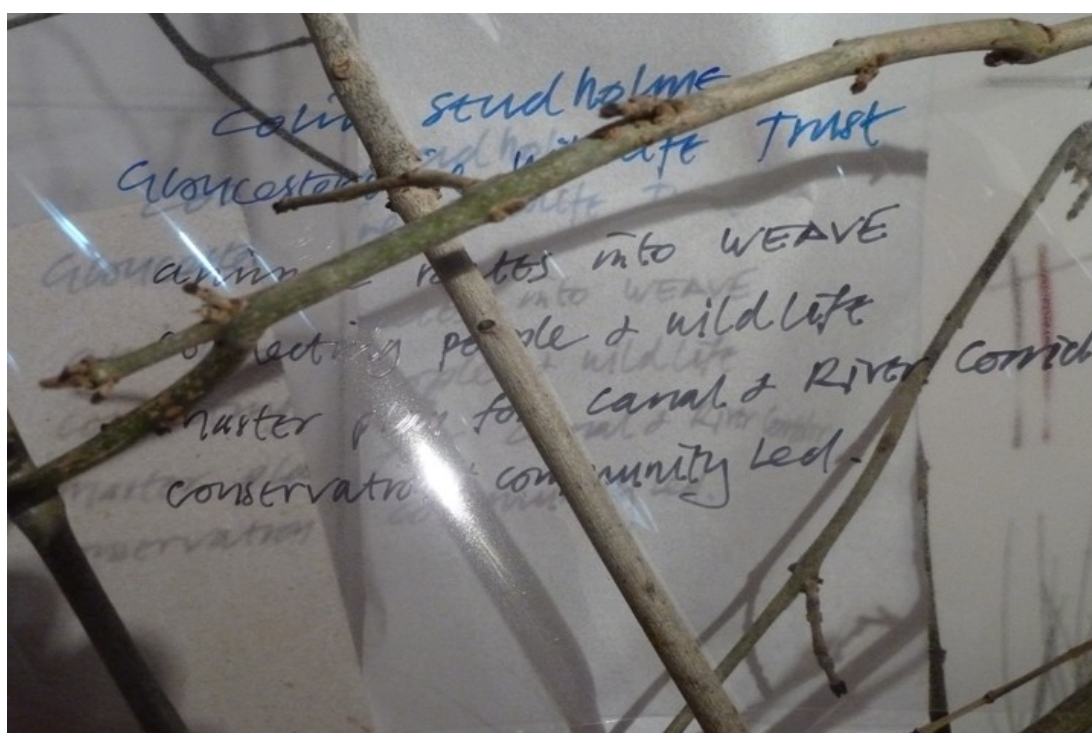 Colin Studholme
Gloucestershire Wildlife Trust
into WEAVE
connecting people & wildlife
master plan for canal & River Corrid
conservation community Led.